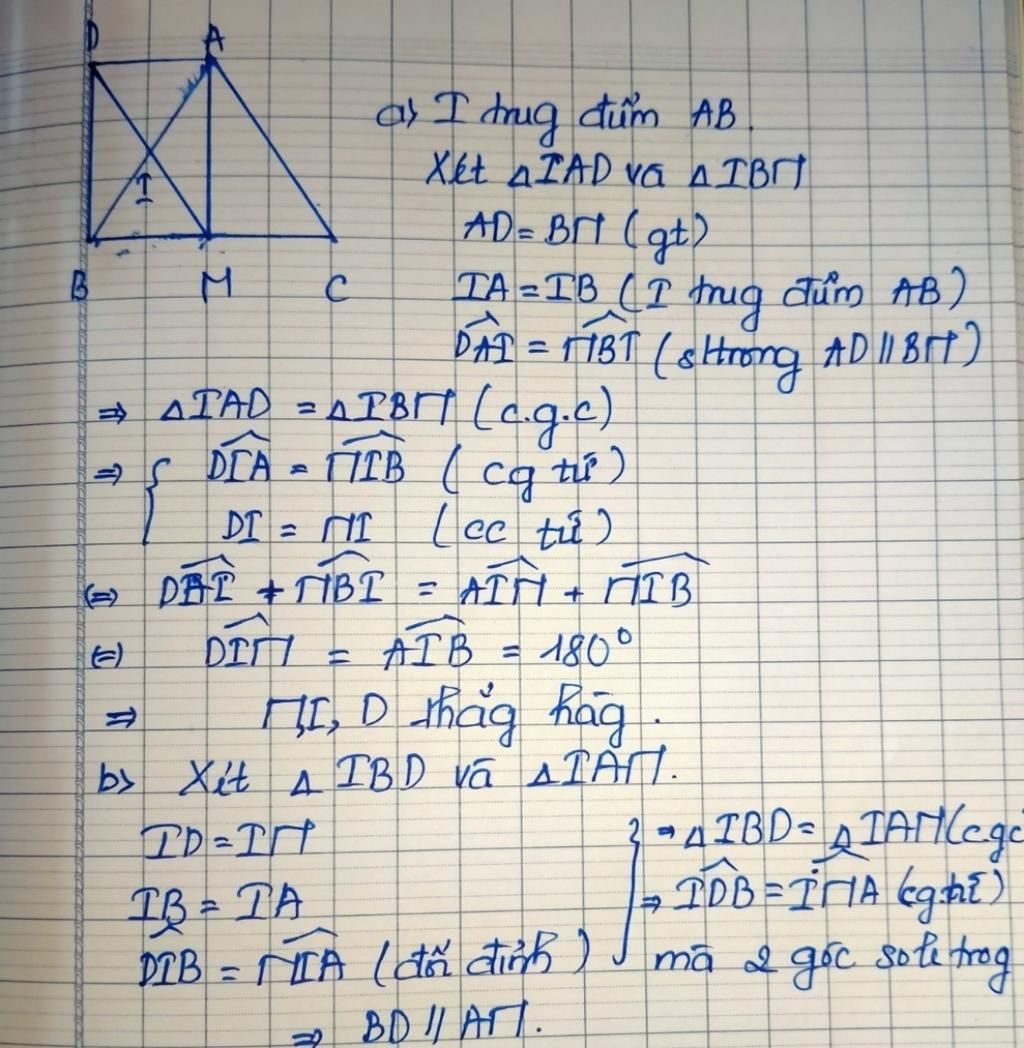 D A
I
B M C
a) I trug điểm AB.
Xét ΔIAD và ΔIBM
AD = BM (gt)
IA = IB (I trug điểm AB)
\widehat{DAI} = \widehat{MBI} (slt trong AD // BM)
⇒ ΔIAD = ΔIBM (c.g.c)
⇒ { \widehat{DIA} = \widehat{MIB} (cg tứ)
DI = MI (cc tứ)
(=) \widehat{DAI} + \widehat{MBI} = \widehat{AIM} + \widehat{MIB}
(=) \widehat{DIM} = \widehat{AIB} = 180°
⇒ M, I, D thẳg hàg.
b) Xét Δ IBD và ΔIAM.
ID = IM
IB = IA
\widehat{DIB} = \widehat{MIA} (đối đỉnh)
} ⇒ ΔIBD = ΔIAM (cgc
⇒ \widehat{IDB} = \widehat{IMA} (cg tứ)
mà 2 góc so le trog
⇒ BD // AM.